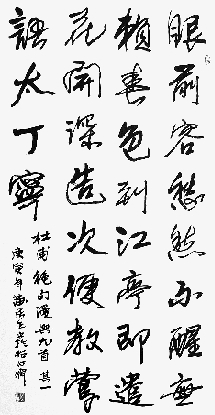 眼前客愁愁不醒無
賴春色到江亭即遣
花開深造次便教鶯
語太丁寧
杜甫絕句漫興九首其一
庚寅年